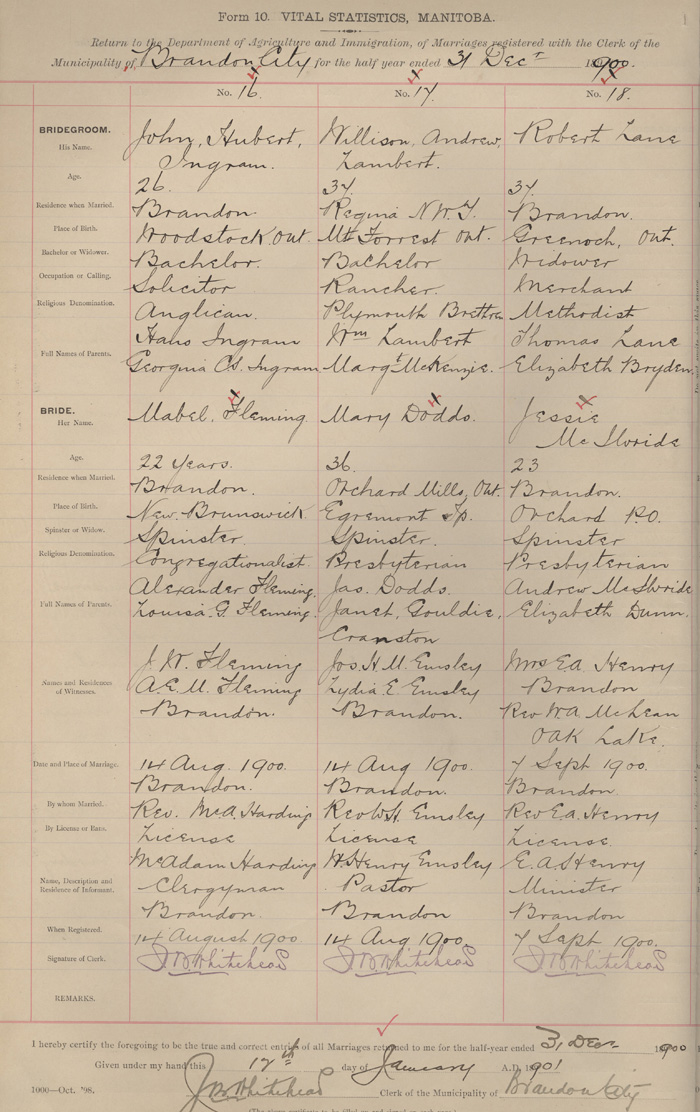 Form 10. VITAL STATISTICS, MANITOBA.
Return to the Department of Agriculture and Immigration, of Marriages registered with the Clerk of the
Municipality of Brandon City for the half year ended 31 Decr 1900.
No. 16. No. 17. No. 18.
BRIDEGROOM.
His Name. John, Hubert, Willison, Andrew, Robert Lane
Ingram. Lambert.
Age. 26. 37. 37.
Residence when Married. Brandon. Regina N.W.T. Brandon.
Place of Birth. Woodstock. Ont. Mt Forrest Ont. Greenoch, Ont.
Bachelor or Widower. Bachelor. Bachelor Widower
Occupation or Calling. Solicitor Rancher. Merchant
Religious Denomination. Anglican. Plymouth Brethren Methodist
Full Names of Parents. Hans Ingram Wm Lambert Thomas Lane
Georgina Cs. Ingram Margt McKenzie. Elizabeth Bryden
BRIDE.
Her Name. Mabel. Fleming. Mary Dodds. Jessie
McIlvride
Age. 22 years. 36. 23
Residence when Married. Brandon. Orchard Mills, Ont. Brandon.
Place of Birth. New. Brunswick Egremont Tp. Orchard P.O.
Spinster or Widow. Spinster. Spinster. Spinster
Religious Denomination. Congregationalist Presbyterian Presbyterian
Full Names of Parents. Alexander Fleming. Jas. Dodds. Andrew McIlvride
Louisa. G. Fleming. Janet, Gouldie, Elizabeth Dunn.
Cranston
Names and Residences of Witnesses. J. W. Fleming Jos. H. M. Emsley Mrs E.A. Henry
A.E. M. Fleming Lydia E. Emsley Brandon
Brandon. Brandon. Rev W.A. McLean
Oak Lake.
Date and Place of Marriage. 14 Aug. 1900. 14 Aug 1900. 7 Sept 1900.
Brandon. Brandon. Brandon.
By whom Married. Rev. McA. Harding Rev W.H. Emsley Rev E.A. Henry
By License or Bans. License License License.
Name, Description and Residence of Informant. McAdam Harding W. Henry Emsley E.A. Henry
Clergyman Pastor Minister
Brandon. Brandon Brandon
When Registered. 14 August 1900 14 Aug 1900. 7 Sept 1900.
Signature of Clerk. J B Whitehead J B Whitehead J B Whitehead
REMARKS.
I hereby certify the foregoing to be the true and correct entries of all Marriages returned to me for the half-year ended 31 Decr 1900
Given under my hand this 17th day of January A.D. 1901
J B Whitehead Clerk of the Municipality of Brandon City
1000—Oct. '98.